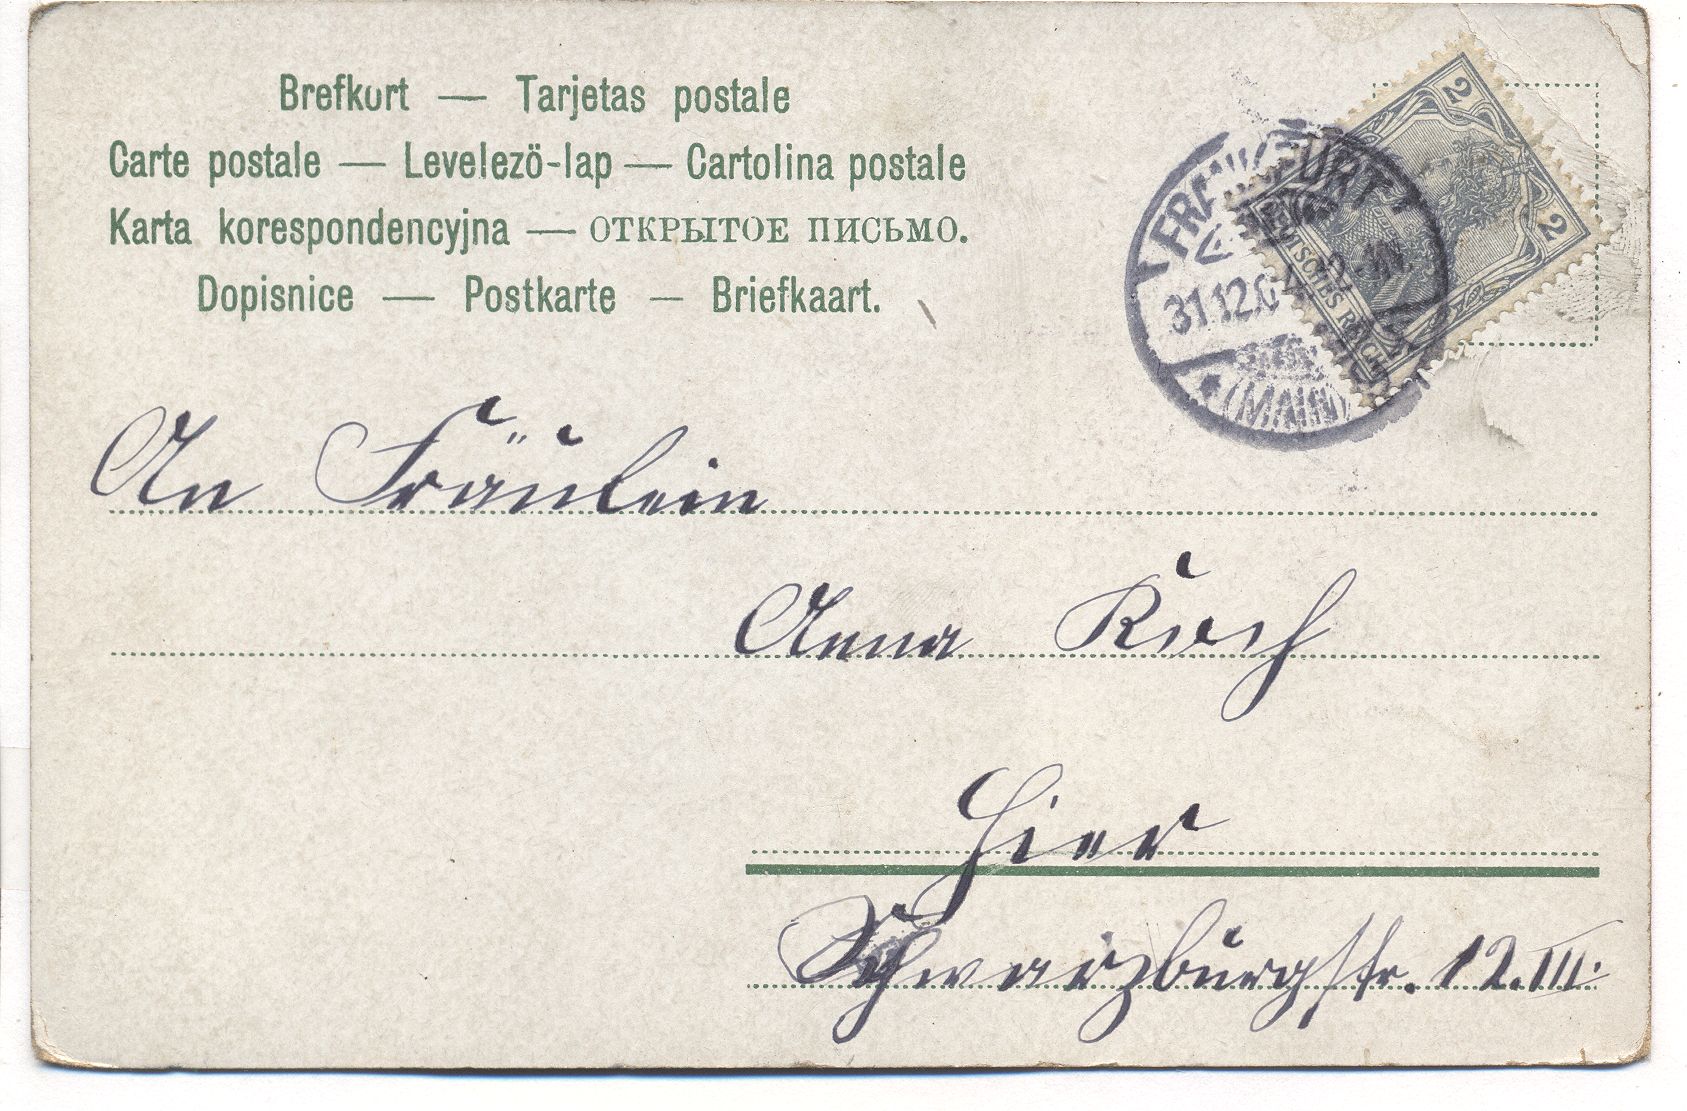 Brefkort — Tarjetas postale
Carte postale — Levelezö-lap — Cartolina postale
Karta korespondencyjna — ОТКРЫТОЕ ПИСЬМО.
Dopisnice — Postkarte — Briefkaart.
2
2
DEUTSCHES REICH
FRANKFURT
31.12.0
(MAIN)
An Fräulein
Anna Koch
Hier
Schwarzburgstr. 12.III.